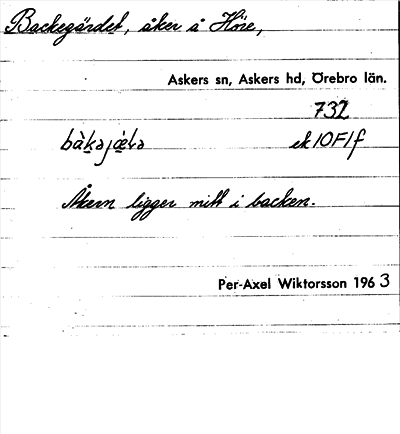 Backegärdet, åker å Höje,
Askers sn, Askers hd, Örebro län.
732
ek 10F1f
Åkern ligger mitt i backen.
Per-Axel Wiktorsson 1963